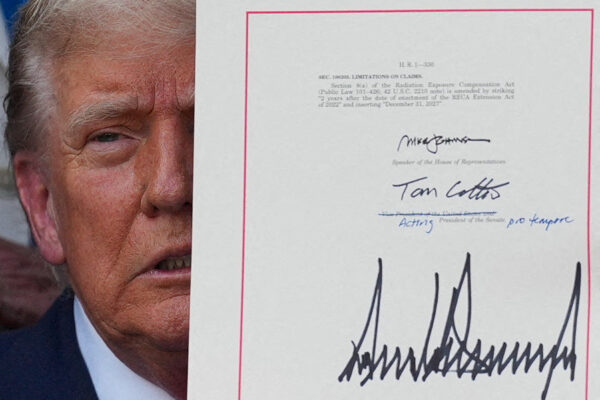 H. R. 1—330
SEC. 100205. LIMITATIONS ON CLAIMS.
Section 8(a) of the Radiation Exposure Compensation Act
(Public Law 101–426; 42 U.S.C. 2210 note) is amended by striking
"2 years after the date of enactment of the RECA Extension Act
of 2022" and inserting "December 31, 2027"
Mike Johnson
Speaker of the House of Representatives
Tom Cotton
Vice President of the United States and
Acting President of the Senate pro tempore